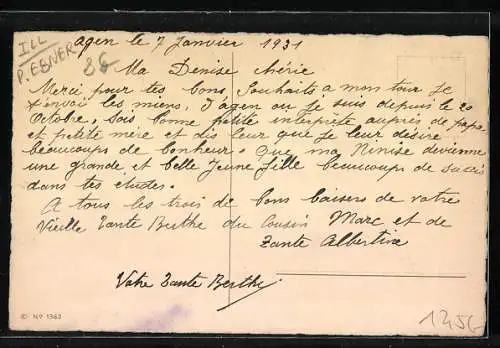 ILL
P. EBNER
86
agen le 7 Janvier 1931
Ma Denise chérie
Merci pour tes bons Souhaits a mon tour je
t'envoi les miens, d'agen ou je suis depuis le 20
Octobre, sois bonne petite interprète auprès de papa
et petite mère et dis leur que je leur désire
beaucoups de bonheur. Que ma Ninise devienne
une grande et belle Jeune fille beaucoups de succès
dans tes etudes.
A tous les trois de bons baisers de votre
Vieille Tante Berthe du Cousin Marc et de
Tante Albertine
Votre Tante Berthe
© No 1363